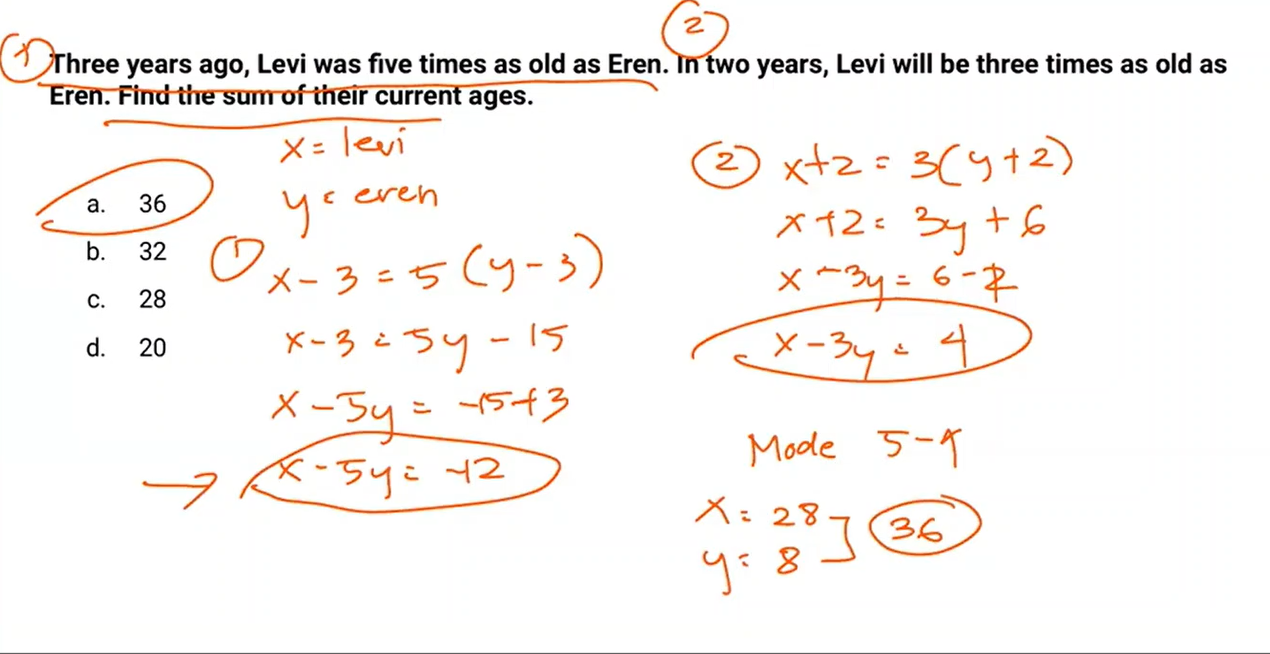 ① Three years ago, Levi was five times as old as Eren. ② In two years, Levi will be three times as old as
Eren. Find the sum of their current ages.
a. 36
b. 32
c. 28
d. 20
x = levi
y = eren
① x - 3 = 5 (y - 3)
x - 3 = 5y - 15
x - 5y = -15+3
→ x - 5y = -12
② x+2 = 3(y+2)
x+2 = 3y + 6
x - 3y = 6 - 2
x - 3y = 4
Mode 5-1
x = 28
y = 8
36